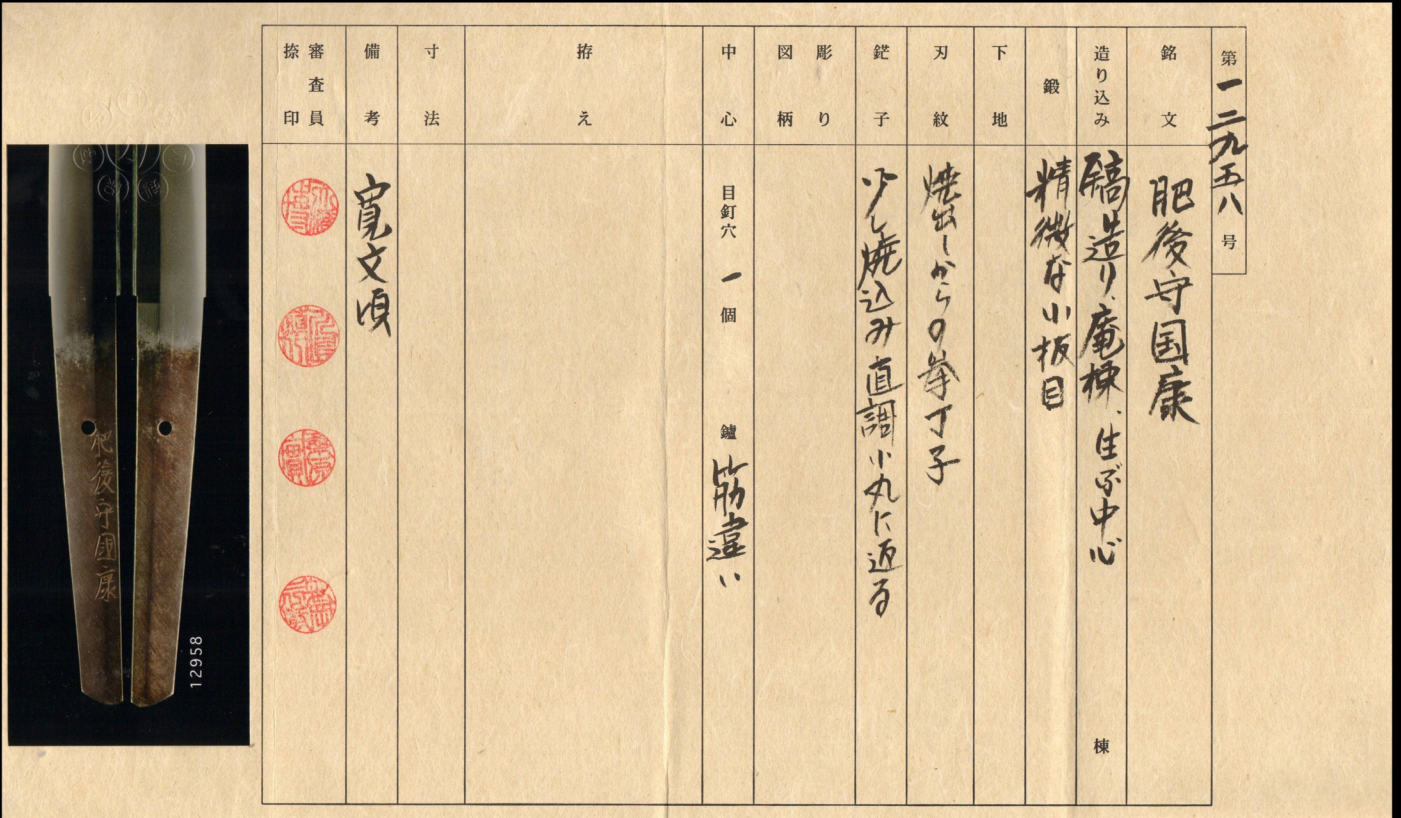 第一二九五八号
銘文
肥後守国康
造り込み
鎬造り、庵棟、生ぶ中心
棟
鍛
精微な小板目
下地
刃紋
焼出しからの拳丁子
鋩子
少し焼込み直調小丸に返る
彫り
図柄
中心
目釘穴 一 個
鑢 筋違い
拵え
寸法
備考
寛文頃
審査員
捺印
肥後守國康
12958